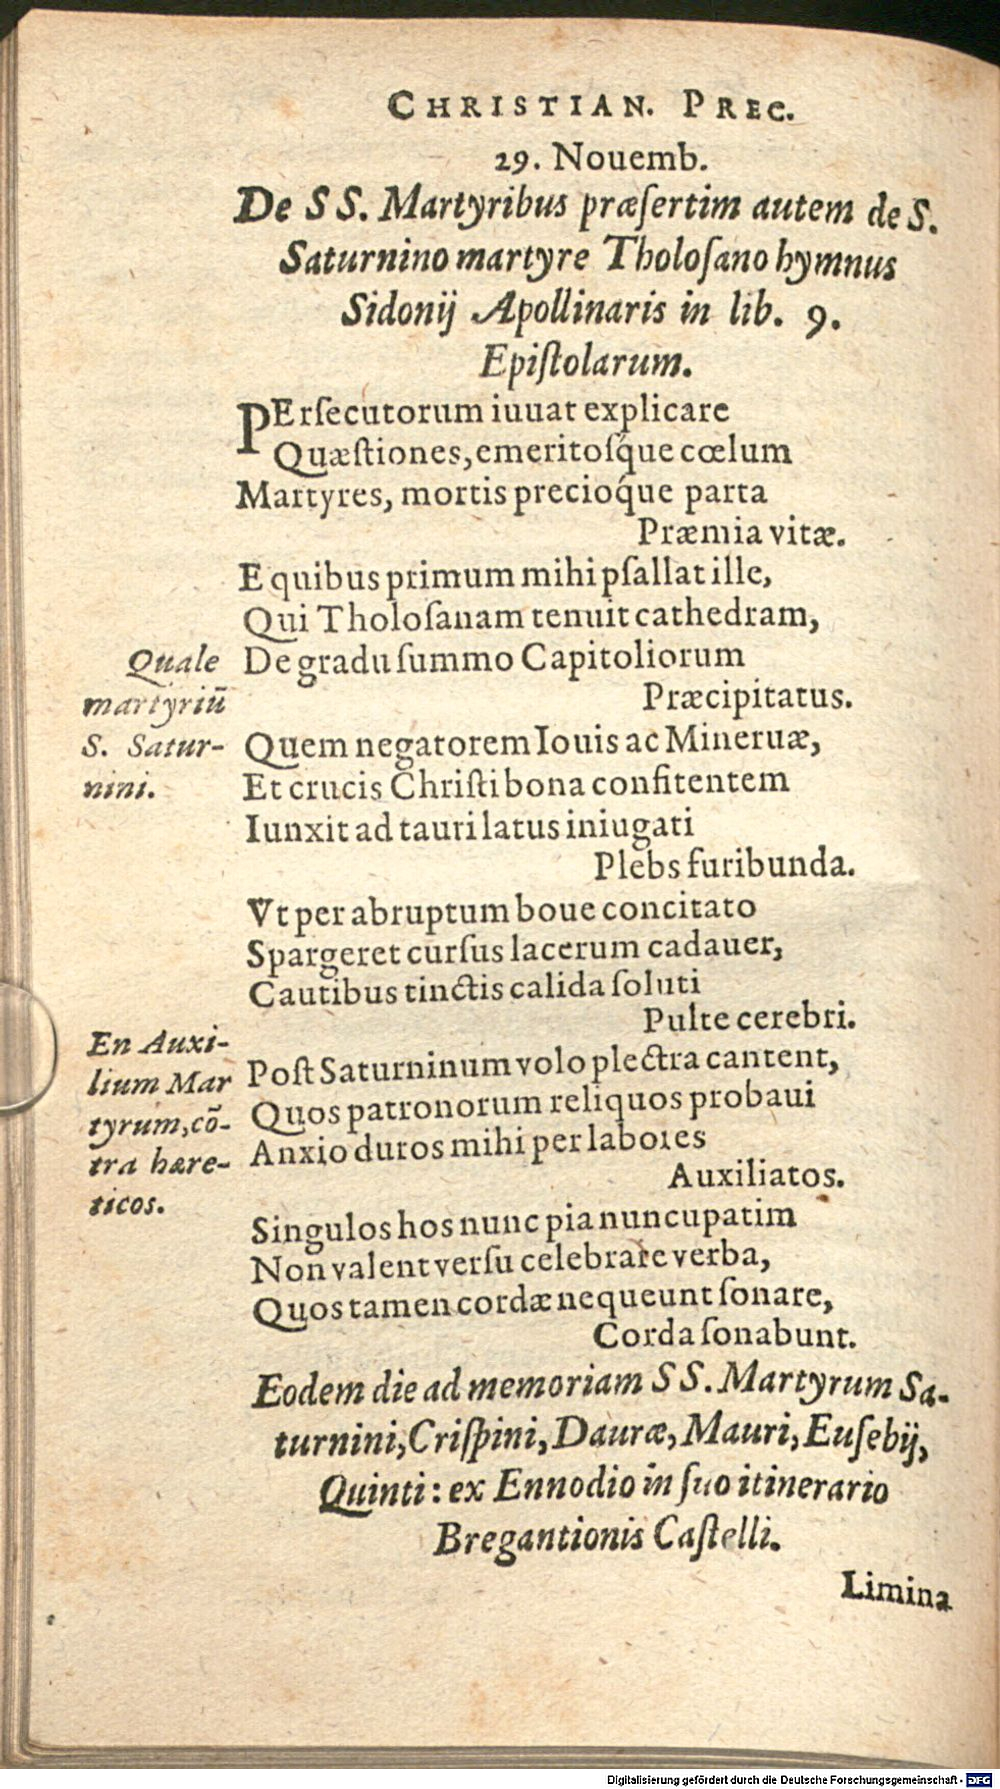 CHRISTIAN. PREC.
29. Nouemb.
De SS. Martyribus præſertim autem de S.
Saturnino martyre Tholoſano hymnus
Sidonij Apollinaris in lib. 9.
Epiſtolarum.
PErſecutorum iuuat explicare
Quæſtiones, emeritoſq́ue cœlum
Martyres, mortis precioq́ue parta
Præmia vitæ.
E quibus primum mihi pſallat ille,
Qui Tholoſanam tenuit cathedram,
De gradu ſummo Capitoliorum
Præcipitatus.
Quale
martyriū
S. Satur-
nini.
Quem negatorem Iouis ac Mineruæ,
Et crucis Chriſti bona confitentem
Iunxit ad tauri latus iniugati
Plebs furibunda.
Vt per abruptum boue concitato
Spargeret curſus lacerum cadauer,
Cautibus tinctis calida ſoluti
Pulte cerebri.
En Auxi-
lium Mar
tyrum, cō-
tra hære-
ticos.
Poſt Saturninum volo plectra cantent,
Quos patronorum reliquos probaui
Anxio duros mihi per labores
Auxiliatos.
Singulos hos nunc pia nuncupatim
Non valent verſu celebrare verba,
Quos tamen cordæ nequeunt ſonare,
Corda ſonabunt.
Eodem die ad memoriam SS. Martyrum Sa-
turnini, Criſpini, Dauræ, Mauri, Euſebij,
Quinti: ex Ennodio in ſuo itinerario
Bregantionis Caſtelli.
Limina
Digitalisierung gefördert durch die Deutsche Forschungsgemeinschaft - DFG